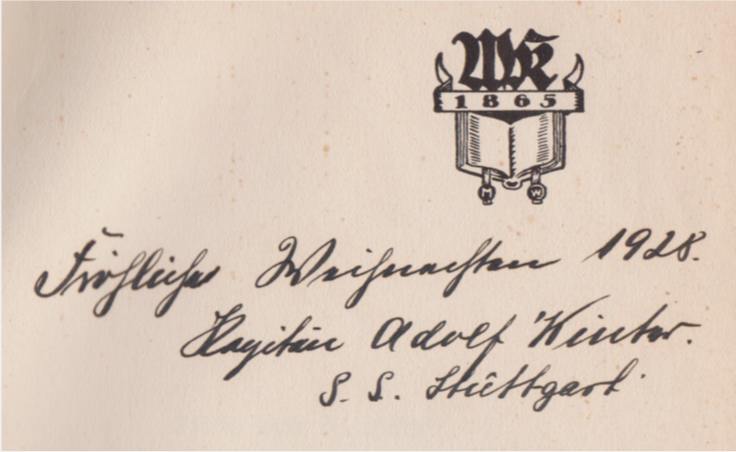 1865
M W
Fröhliche Weihnachten 1928.
Kapitän Adolf Winter.
S. S. Stuttgart.